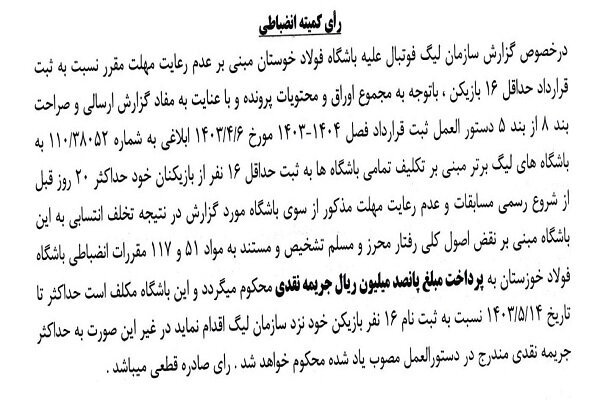 رأی کمیته انضباطی
درخصوص گزارش سازمان لیگ فوتبال علیه باشگاه فولاد خوستان مبنی بر عدم رعایت مهلت مقرر نسبت به ثبت
قرارداد حداقل ۱۶ بازیکن ، باتوجه به مجموع اوراق و محتویات پرونده و با عنایت به مفاد گزارش ارسالی و صراحت
بند ۸ از بند ۵ دستور العمل ثبت قرارداد فصل ۱۴۰۴-۱۴۰۳ مورخ ۱۴۰۳/۴/۶ ابلاغی به شماره ۱۱۰/۳۸۰۵۲ به
باشگاه های لیگ برتر مبنی بر تکلیف تمامی باشگاه ها به ثبت حداقل ۱۶ نفر از بازیکنان خود حداکثر ۲۰ روز قبل
از شروع رسمی مسابقات و عدم رعایت مهلت مذکور از سوی باشگاه مورد گزارش در نتیجه تخلف انتسابی به این
باشگاه مبنی بر نقض اصول کلی رفتار محرز و مسلم تشخیص و مستند به مواد ۵۱ و ۱۱۷ مقررات انضباطی باشگاه
فولاد خوزستان به پرداخت مبلغ پانصد میلیون ریال جریمه نقدی محکوم میگردد و این باشگاه مکلف است حداکثر تا
تاریخ ۱۴۰۳/۵/۱۴ نسبت به ثبت نام ۱۶ نفر بازیکن خود نزد سازمان لیگ اقدام نماید در غیر این صورت به حداکثر
جریمه نقدی مندرج در دستورالعمل مصوب یاد شده محکوم خواهد شد . رای صادره قطعی میباشد .